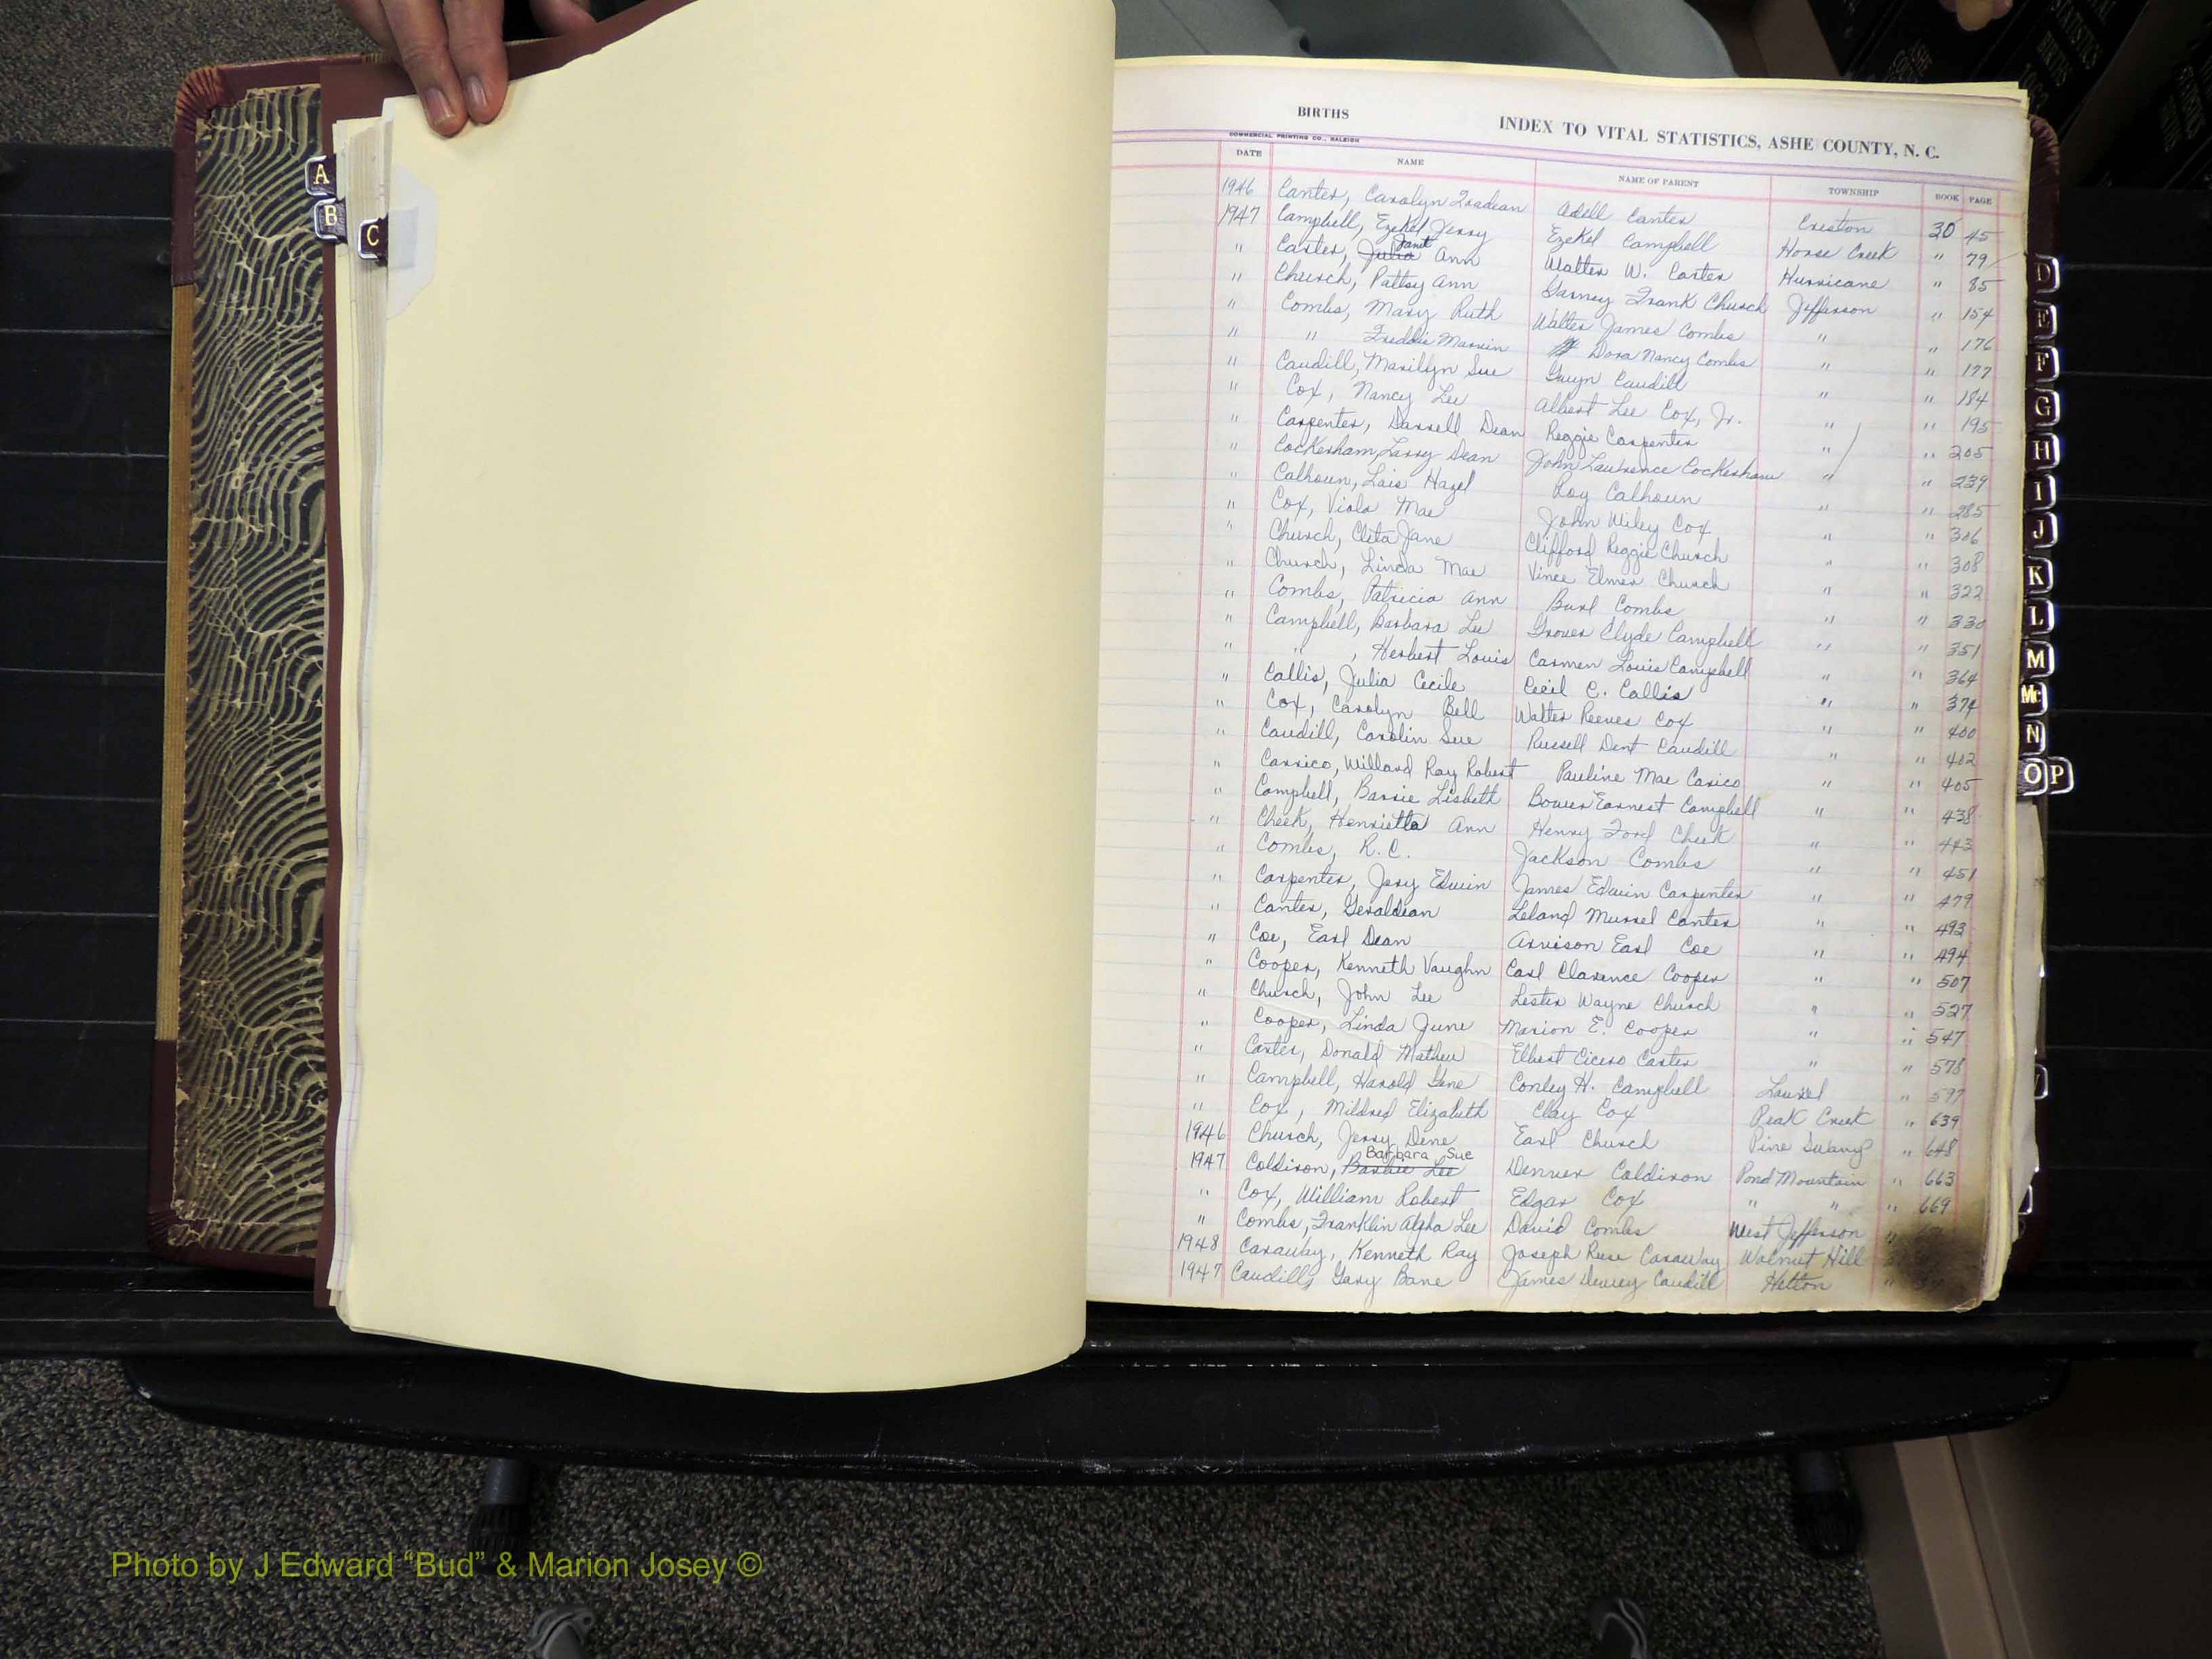 BIRTHS
INDEX TO VITAL STATISTICS, ASHE COUNTY, N. C.
COMMERCIAL PRINTING CO., RALEIGH
DATE NAME NAME OF PARENT TOWNSHIP BOOK PAGE
1946 Canter, Carolyn Adell Canter Creston 30 45
1947 Campbell, Ezekel Jerry Ezekel Campbell Horse Creek " 79
" Carter, Julia Janet Ann Walter W. Carter Hurricane " 85
" Church, Pattsy Ann Garney Frank Church Jefferson " 154
" Combs, Mary Ruth Walter James Combs " " 176
" " Freddie Marvin Dora Nancy Combs " " 177
" Caudill, Marillyn Sue Gwyn Caudill " " 184
" Cox, Nancy Lee Albert Lee Cox, Jr. " " 195
" Carpenter, Darrell Dean Reggie Carpenter " " 205
" Cockerham, Larry Dean John Lawrence Cockerham " " 239
" Calhoun, Lois Hazel Roy Calhoun " " 285
" Cox, Viola Mae John Wiley Cox " " 306
" Church, Cleta Jane Clifford Reggie Church " " 308
" Church, Linda Mae Vince Elmer Church " " 322
" Combs, Patricia Ann Burl Combs " " 330
" Campbell, Barbara Lee Grover Clyde Campbell " " 351
" " , Herbert Louis Carmen Louis Campbell " " 364
" Callis, Julia Cecile Cecil C. Callis " " 374
" Cox, Carolyn Bell Walter Reeves Cox " " 400
" Caudill, Carolin Sue Russell Dent Caudill " " 402
" Carrico, Willard Ray Robert Pauline Mae Carico " " 405
" Campbell, Barrie Lisbeth Bower Earnest Campbell " " 438
" Cheek, Henrietta Ann Henry Ford Cheek " " 443
" Combs, R. C. Jackson Combs " " 451
" Carpenter, Jery Edwin James Edwin Carpenter " " 479
" Canter, Geraldean Leland Mussel Canter " " 493
" Coe, Earl Dean Arvison Earl Coe " " 494
" Cooper, Kenneth Vaughn Carl Clarence Cooper " " 507
" Church, John Lee Lester Wayne Church " " 527
" Cooper, Linda June Marion E. Cooper " " 547
" Carter, Donald Mathew Elbert Cicero Carter " " 578
" Campbell, Harold Gene Conley H. Campbell Laurel " 597
" Cox, Mildred Elizabeth Clay Cox Peak Creek " 639
1946 Church, Jerry Dene Earl Church Pine Swamp " 648
1947 Coldiron, Barbie Lee Barbara Sue Denver Coldiron Pond Mountain " 663
" Cox, William Robert Edgar Cox " " " 669
" Combs, Franklin Alpha Lee David Combs West Jefferson "
1948 Caraway, Kenneth Ray Joseph Rese Caraway Walnut Hill
1947 Caudill, Gary Bane James Dewey Caudill Helton "
A
B
C
D
E
F
G
H
I
J
K
L
M
Mc
N
O P
ASHE
VITAL STATISTICS
BIRTHS
Photo by J Edward “Bud” & Marion Josey ©